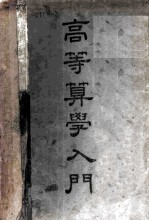 高等算學入門